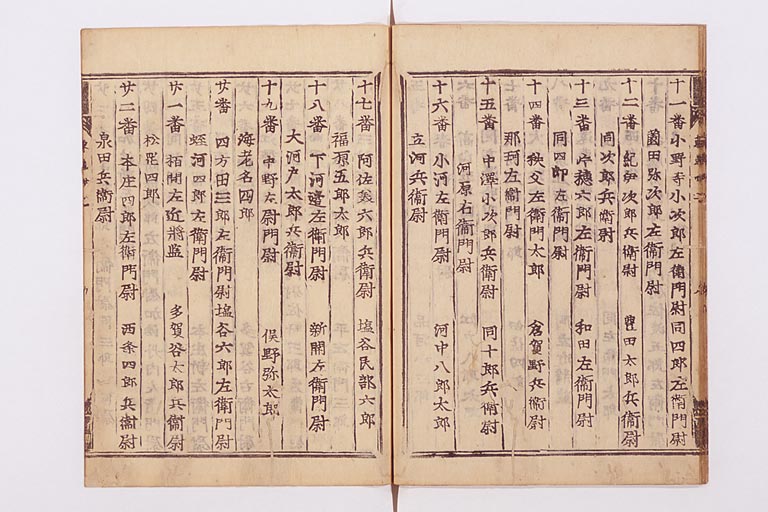 十一番小野寺小次郎左衛門尉同四郎左衛門尉
薗田弥次郎左衛門尉
十二番紀伊次郎兵衛尉 豊田太郎兵衛尉
同次郎兵衛尉
十三番片穂六郎左衛門尉 和田左衛門尉
同四郎左衛門尉
十四番大秩父左衛門太郎 倉賀野兵衛尉
那珂左衛門尉
十五番中澤小次郎兵衛尉 同十郎兵衛尉
河原右衛門尉
十六番小河左衛門尉 河中八郎太郎
立河兵衛尉
十七番阿佐美六郎兵衛尉 塩谷民部六郎
福原五郎太郎
十八番下河邉左衛門尉 新開左衛門尉
大河戸太郎兵衛尉
十九番中野左衛門尉 俣野弥太郎
海老名四郎
廿番四方田三郎左衛門尉塩谷六郎左衛門尉
蛭河四郎左衛門尉
廿一番拓開左近將監 多賀谷太郎兵衛尉
松岡四郎
廿二番本庄四郎左衛門尉 西条四郎兵衛尉
泉田兵衛尉